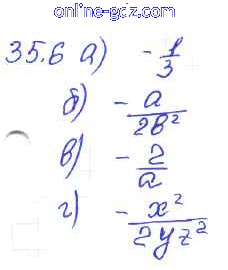 online-gdz.com
35.6 а) -1/3
б) -a/2b²
в) -2/a
г) -x²/2yz²